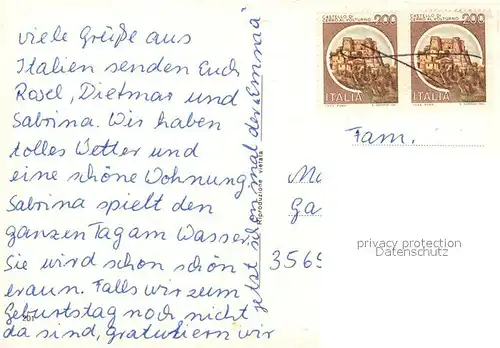 viele Grüße aus
Italien senden Euch
Rosel, Dietmar und
Sabrina. Wir haben
tolles Wetter und
eine schöne Wohnung.
Sabrina spielt den
ganzen Tag am Wasser.
Sie wird schon schön
braun. Falls wir zum
Geburtstag noch nicht
da sind, gratulieren wir
jetzt schon mal der "Emma"
201
Riproduzione vietata
CASTELLO DI
CERRO AL VOLTURNO
200
ITALIA
CASTELLO DI
CERRO AL VOLTURNO
200
ITALIA
Fam.
Ma
Ga
3569
privacy protection
Datenschutz